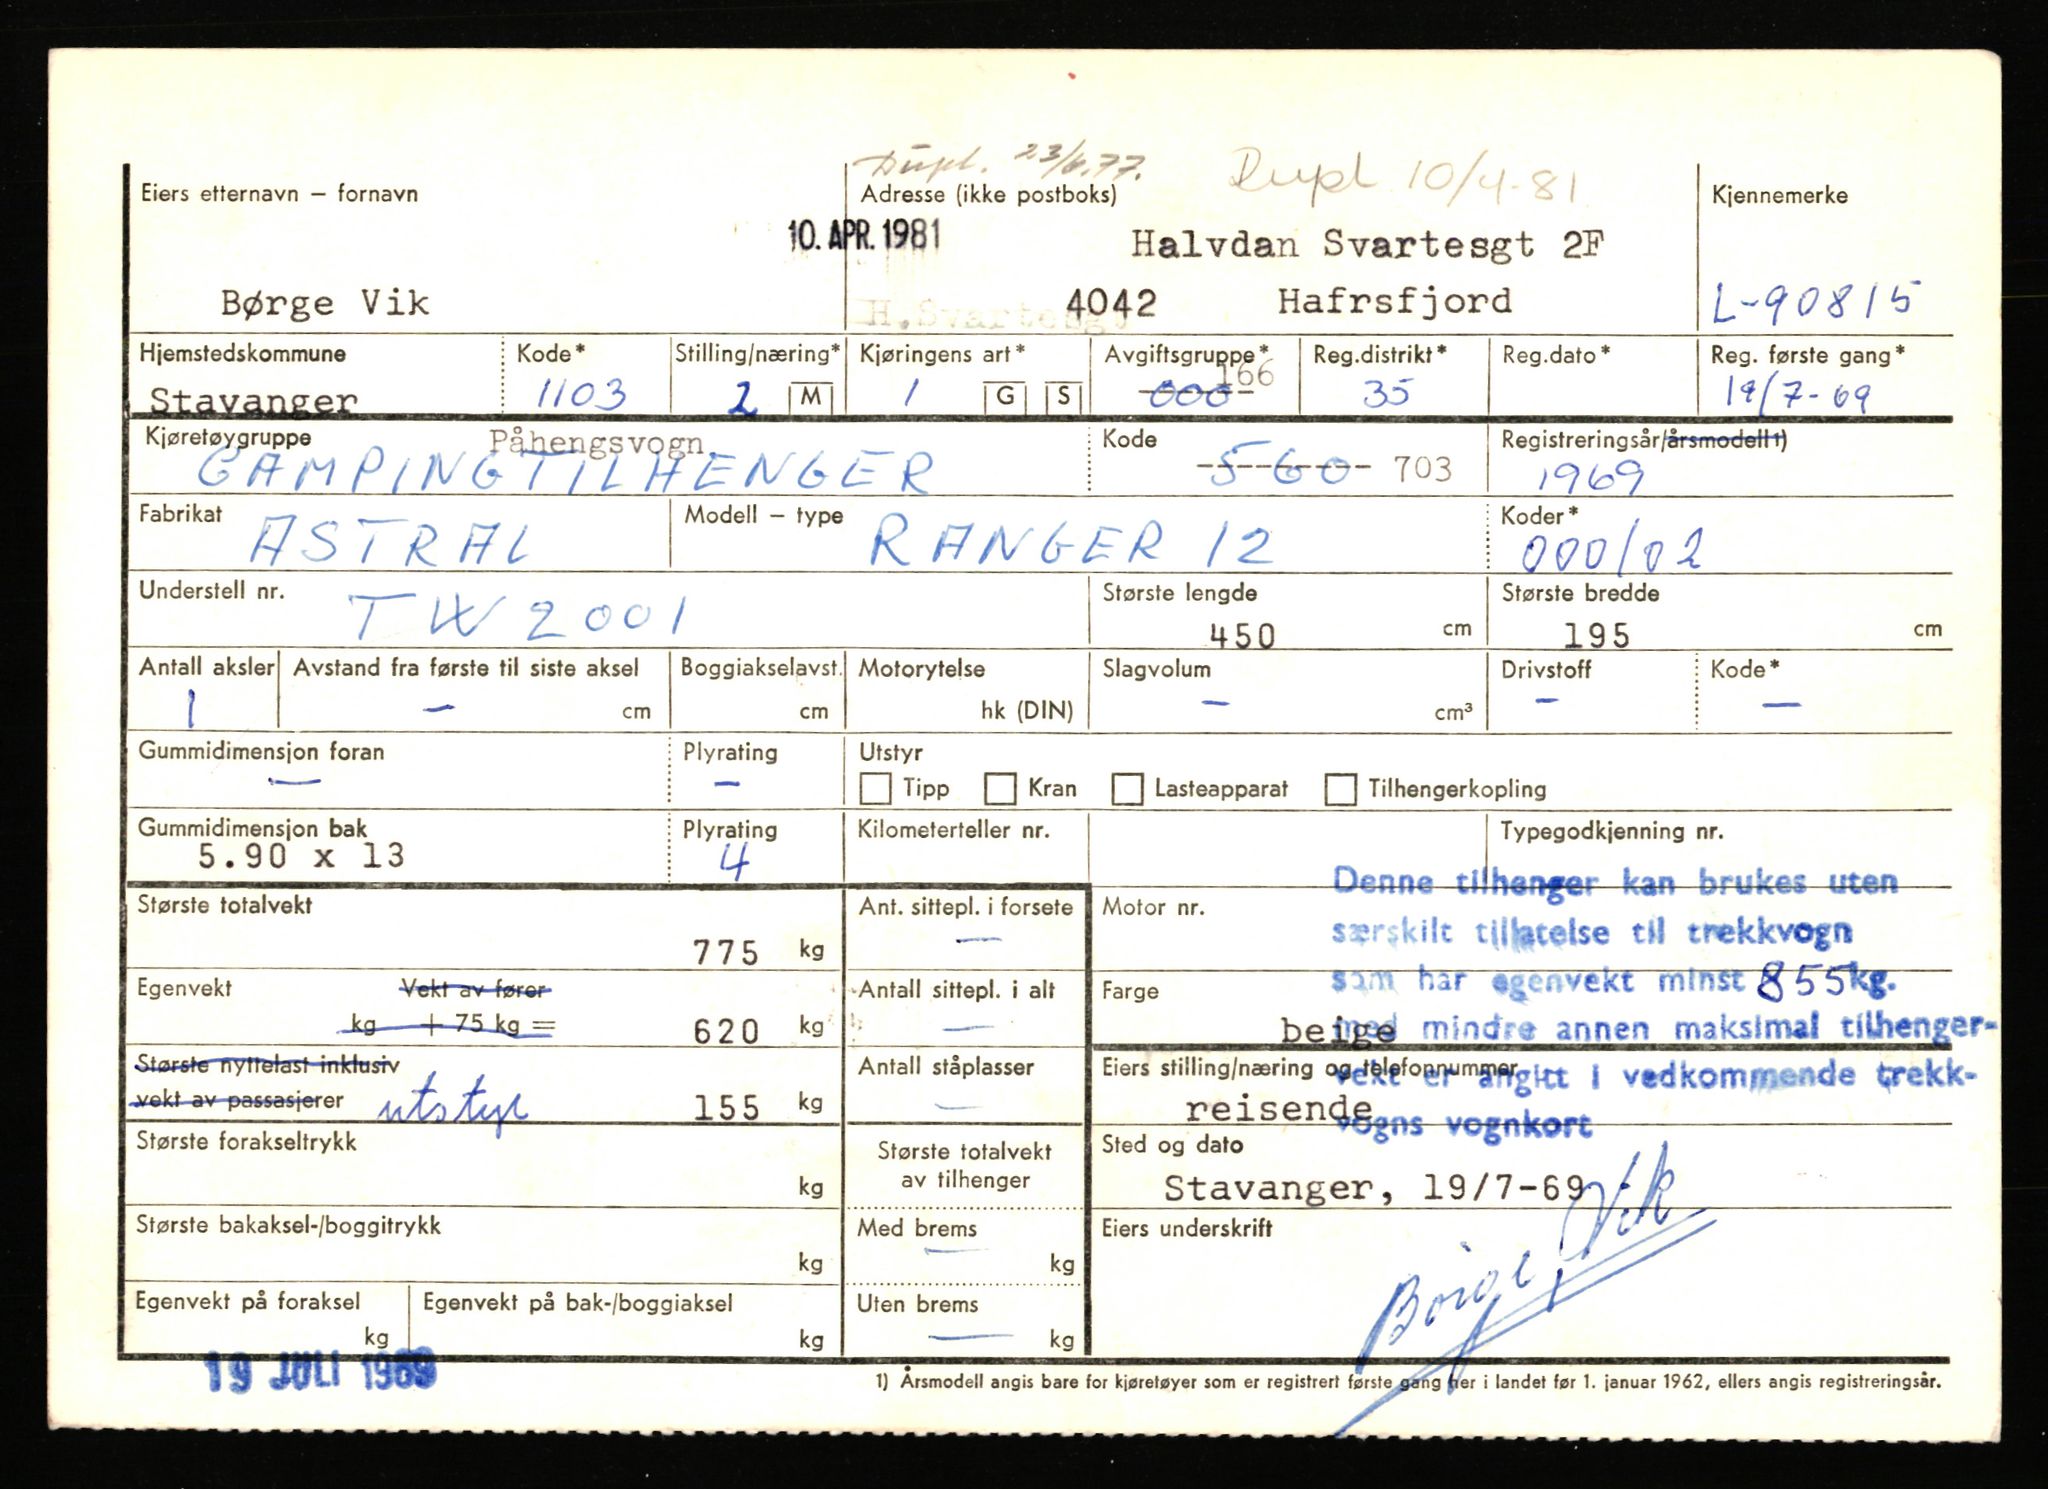 Dupl. 23/6.77. Dupl 10/4-81
Eiers etternavn – fornavn Adresse (ikke postboks) Kjennemerke
10. APR. 1981 Halvdan Svartesgt 2F
Børge Vik H.Svartesgt 4042 Hafrsfjord L-90815
Hjemstedskommune Kode* Stilling/næring* Kjøringens art* Avgiftsgruppe* Reg.distrikt* Reg.dato* Reg. første gang*
Stavanger 1103 2 M 1 G S 000 166 35 19/7-69
Kjøretøygruppe Påhengsvogn. Kode Registreringsår/årsmodell1)
CAMPINGTILHENGER 560 703 1969
Fabrikat Modell – type Koder*
ASTRAL RANGER 12 000/02
Understell nr. Største lengde Største bredde
TW2001 450 cm 195 cm
Antall aksler Avstand fra første til siste aksel Boggiakselavst. Motorytelse Slagvolum Drivstoff Kode*
1 – cm cm hk (DIN) – cm³ – –
Gummidimensjon foran Plyrating Utstyr
– – Tipp Kran Lasteapparat Tilhengerkopling
Gummidimensjon bak Plyrating Kilometerteller nr. Typegodkjenning nr.
5.90 x 13 4
Denne tilhenger kan brukes uten
Største totalvekt Ant. sittepl. i forsete Motor nr.
særskilt tillatelse til trekkvogn
775 kg –
som har egenvekt minst 855 kg.
Egenvekt Vekt av fører Antall sittepl. i alt Farge
kg + 75 kg = 620 kg – beige
med mindre annen maksimal tilhenger-
Største nyttelast inklusiv Antall ståplasser Eiers stilling/næring og telefonnummer
vekt er angitt i vedkommende trekk-
vekt av passasjerer utstyr 155 kg – reisende
vogns vognkort
Største forakseltrykk Største totalvekt Sted og dato
av tilhenger
kg Stavanger, 19/7-69
Største bakaksel-/boggitrykk Med brems Eiers underskrift
kg – kg Børge Vik
Egenvekt på foraksel Egenvekt på bak-/boggiaksel Uten brems
kg kg – kg
19 JULI 1969
1) Årsmodell angis bare for kjøretøyer som er registrert første gang her i landet før 1. januar 1962, ellers angis registreringsår.